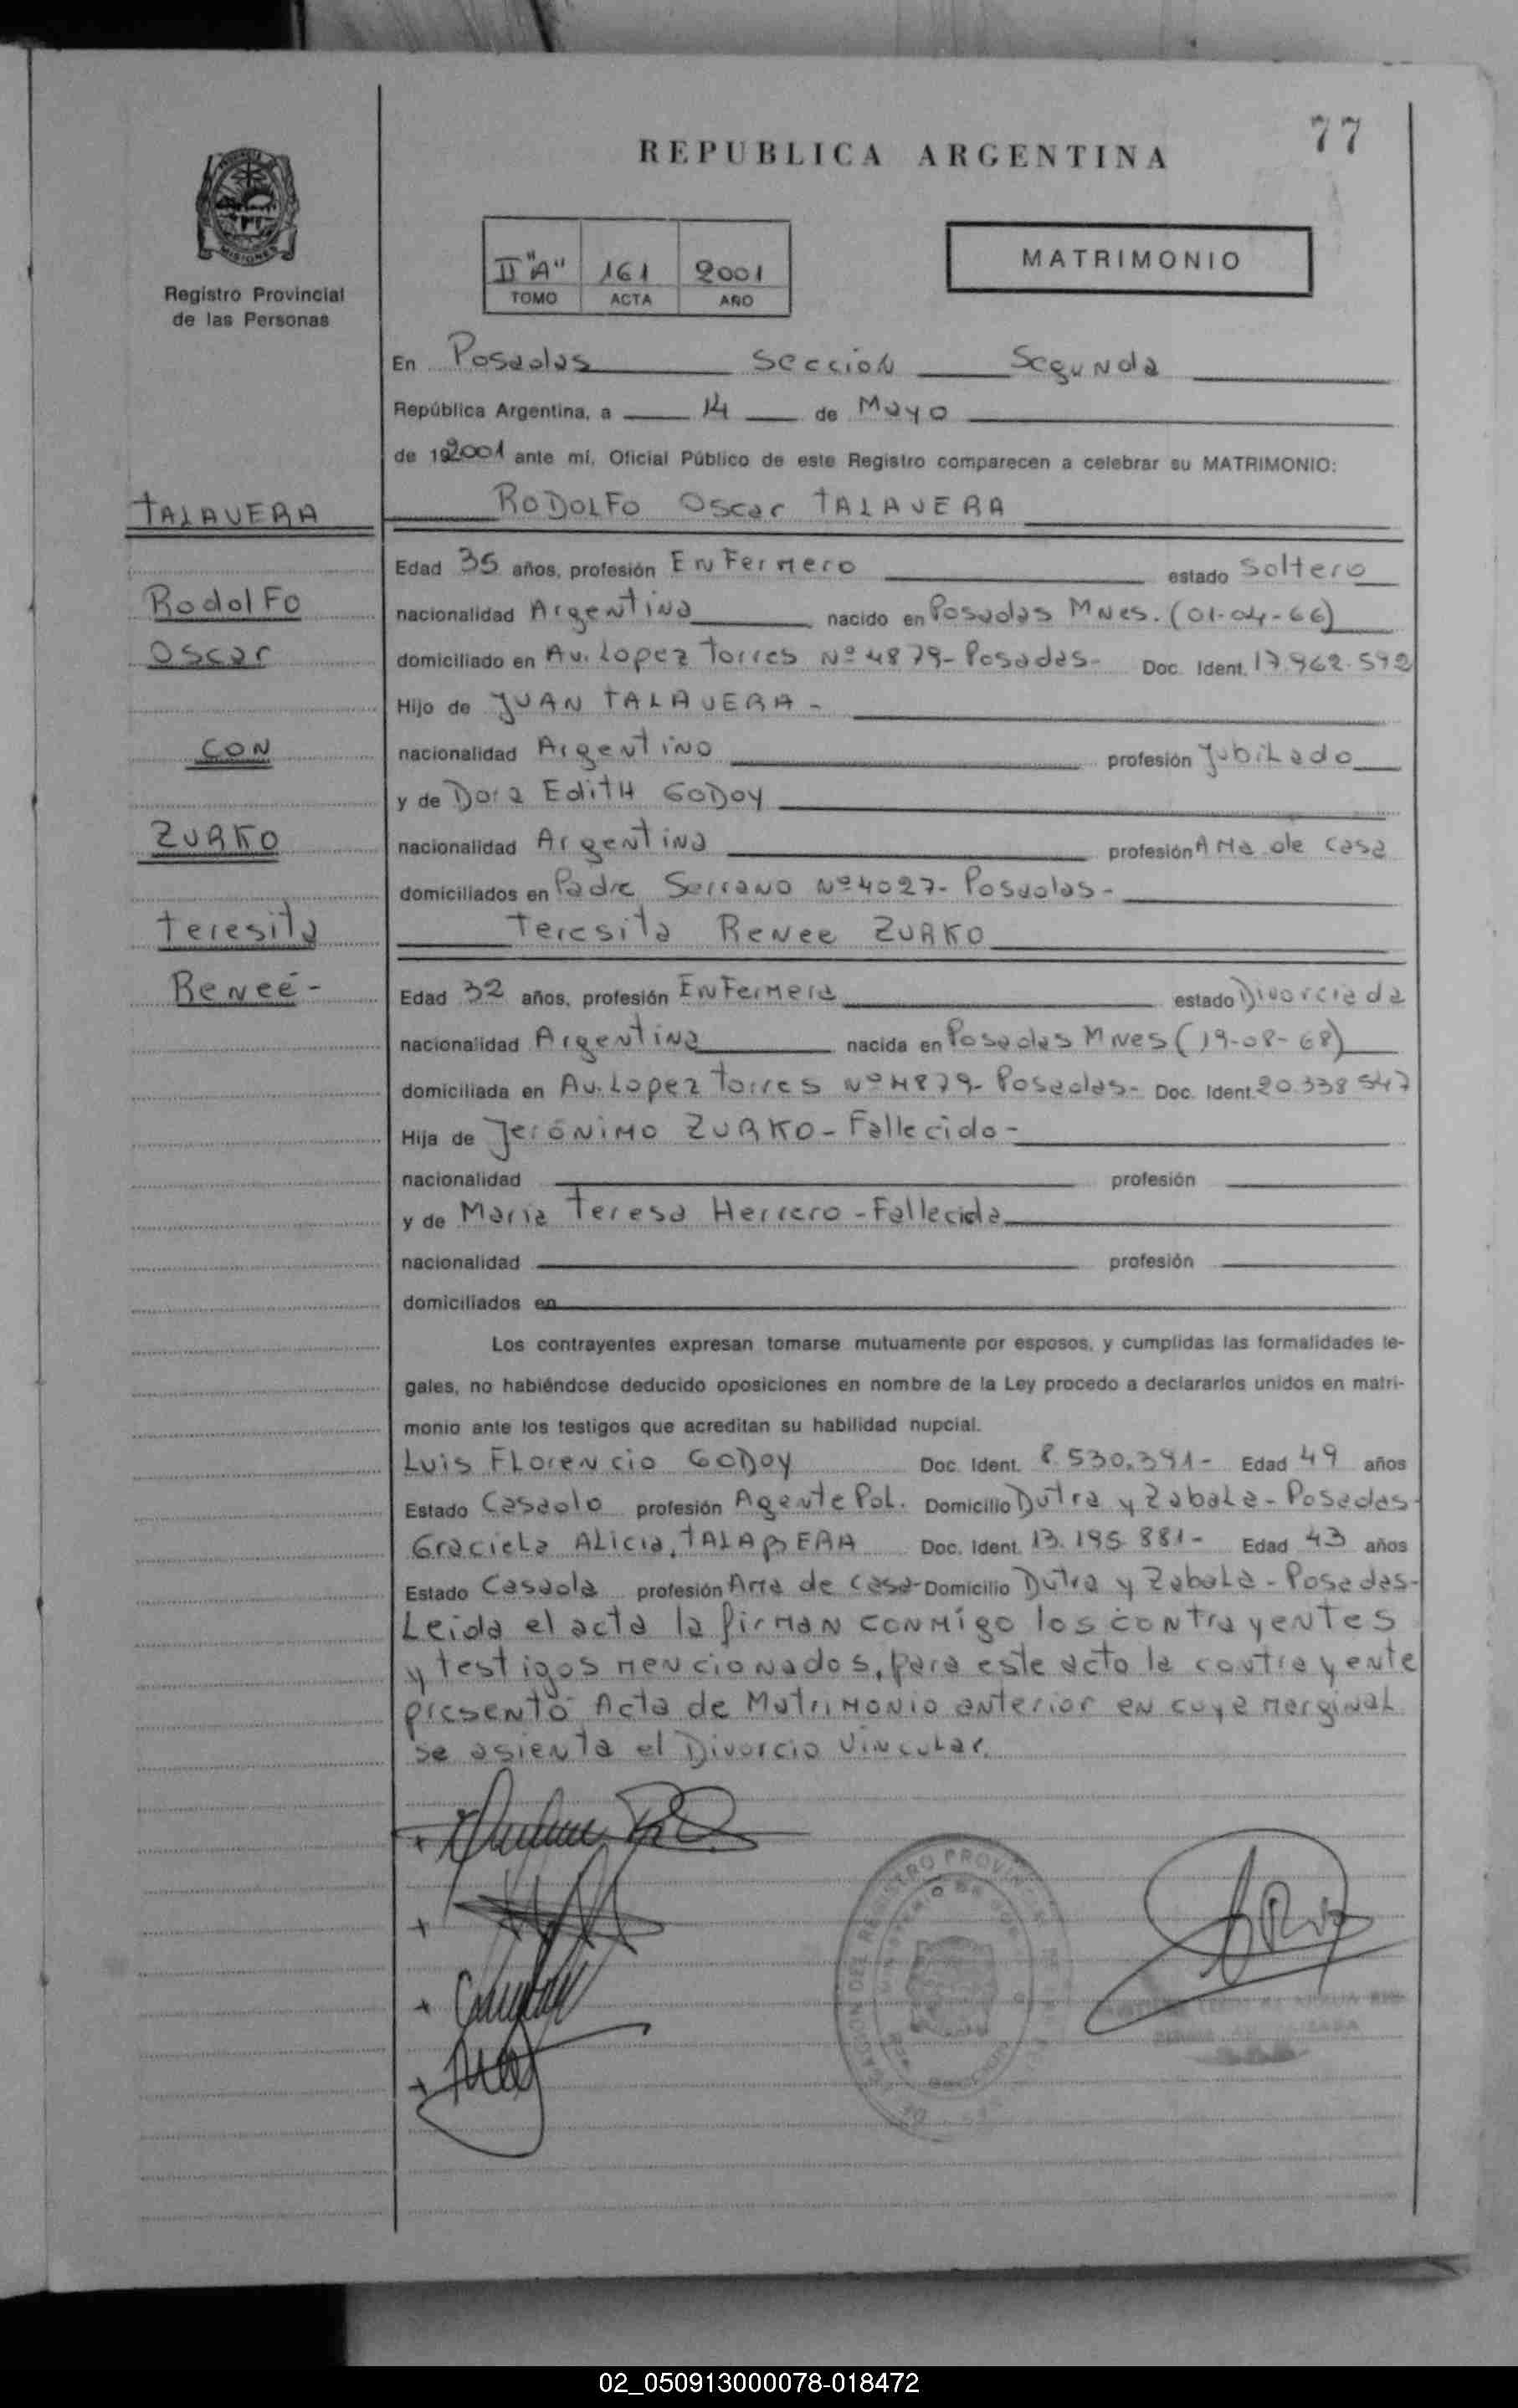 77
REPUBLICA ARGENTINA
MISIONES
Registro Provincial
de las Personas
II "A" 161 2001
TOMO ACTA AÑO
MATRIMONIO
En Posadas Sección Segunda
República Argentina, a 14 de Mayo
de 192001 ante mí, Oficial Público de este Registro comparecen a celebrar su MATRIMONIO:
TALAVERA
RODOLFO Oscar TALAVERA
Edad 35 años, profesión Enfermero estado Soltero
Rodolfo
nacionalidad Argentina nacido en Posadas Mnes. (01-04-66)
Oscar
domiciliado en Av. Lopez Torres Nº 4879- Posadas- Doc. Ident. 17.962.592
Hijo de JUAN TALAVERA -
CON
nacionalidad Argentino profesión Jubilado
y de Dora Edith GODOY
ZURKO
nacionalidad Argentina profesión Ama de casa
domiciliados en Padre Serrano Nº 4027- Posadas-
Teresita
Teresita Renee ZURKO
Reneé-
Edad 32 años, profesión Enfermera estado Divorciada
nacionalidad Argentina nacida en Posadas Mnes (19-08-68)
domiciliada en Av. Lopez Torres Nº 4879- Posadas- Doc. Ident. 20.338.547
Hija de Jerónimo ZURKO - Fallecido-
nacionalidad profesión
y de Maria Teresa Herrero - Fallecida
nacionalidad profesión
domiciliados en
Los contrayentes expresan tomarse mutuamente por esposos, y cumplidas las formalidades le-
gales, no habiéndose deducido oposiciones en nombre de la Ley procedo a declararlos unidos en matri-
monio ante los testigos que acreditan su habilidad nupcial.
Luis Florencio GODOY Doc. Ident. 8.530.391- Edad 49 años
Estado Casado profesión Agente Pol. Domicilio Dutra y Zabala - Posadas-
Graciela Alicia, TALABERA Doc. Ident. 13.195.881- Edad 43 años
Estado Casada profesión Ama de casa- Domicilio Dutra y Zabala - Posadas-
Leida el acta la firman conmigo los contrayentes
y testigos mencionados, para este acto la contrayente
presentó Acta de Matrimonio anterior en cuya marginal
se asienta el Divorcio Vincular.
02_050913000078-018472